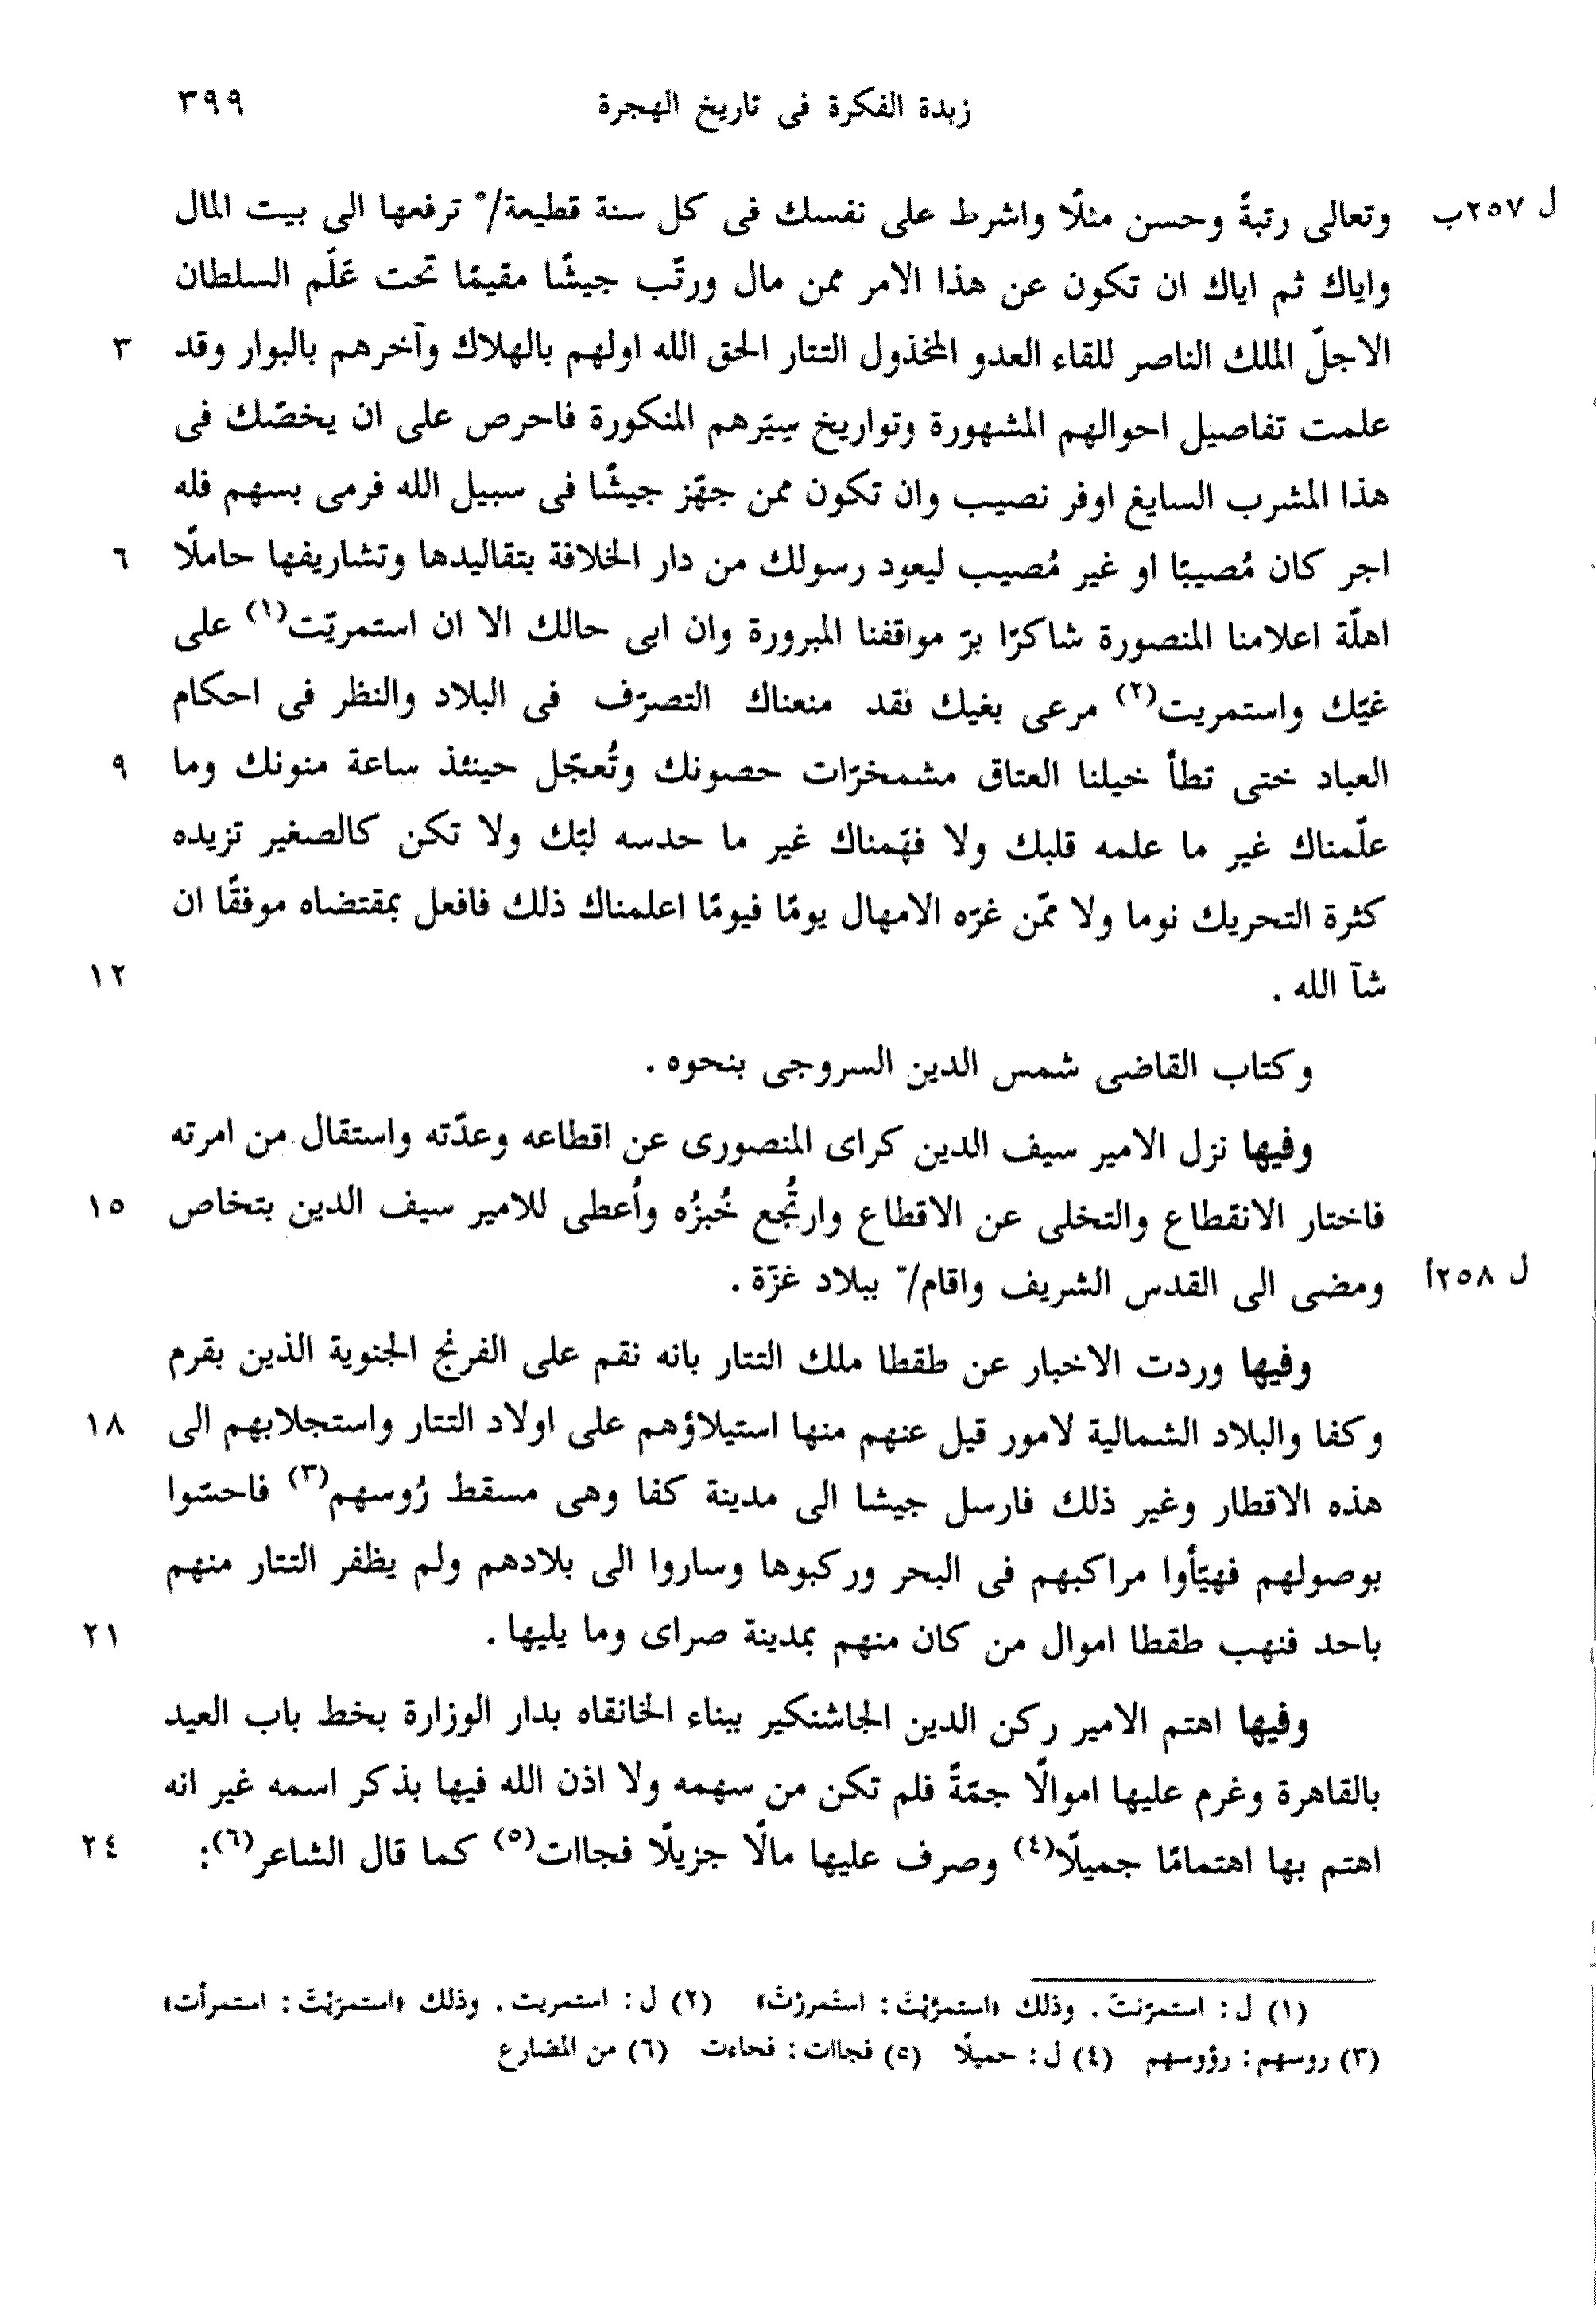 زبدة الفكرة فى تاريخ الهجرة ٣٩٩
ل ٢٥٧ب وتعالى رتبةً وحسن مثلًا واشرط على نفسك فى كل سنة قطيعة/° ترفعها الى بيت المال
واياك ثم اياك ان تكون عن هذا الامر ممن مال ورتّب جيشًا مقيمًا تحت عَلَم السلطان
الاجلّ الملك الناصر للقاء العدو المخذول التتار الحق الله اولهم بالهلاك وآخرهم بالبوار وقد ٣
علمت تفاصيل احوالهم المشهورة وتواريخ سِيَرهم المنكورة فاحرص على ان يخصّك فى
هذا المشرب السايغ اوفر نصيب وان تكون ممن جهّز جيشًا فى سبيل الله فرمى بسهم فله
اجر كان مُصيبًا او غير مُصيب ليعود رسولك من دار الخلافة بتقاليدها وتشاريفها حاملًا ٦
اهلّة اعلامنا المنصورة شاكرًا برّ مواقفنا المبرورة وان ابى حالك الا ان استمريّت(١) على
غيّك واستمريت(٢) مرعى بغيك فقد منعناك التصرّف فى البلاد والنظر فى احكام
العباد ختى تطأ خيلنا العتاق مشمخرّات حصونك وتُعجّل حينئذ ساعة منونك وما ٩
علّمناك غير ما علمه قلبك ولا فهّمناك غير ما حدسه لبّك ولا تكن كالصغير تزيده
كثرة التحريك نوما ولا ممّن غرّه الامهال يومًا فيومًا اعلمناك ذلك فافعل بمقتضاه موفقًا ان
شآ الله . ١٢
وكتاب القاضى شمس الدين السروجى بنحوه .
وفيها نزل الامير سيف الدين كراى المنصورى عن اقطاعه وعدّته واستقال من امرته
فاختار الانقطاع والتخلى عن الاقطاع وارتُّجع خُبزُه وأُعطى للامير سيف الدين بتخاص ١٥
ل ٢٥٨أ ومضى الى القدس الشريف واقام/ ببلاد غزّة .
وفيها وردت الاخبار عن طقطا ملك التتار بانه نقم على الفرنج الجنوية الذين بقرم
وكفا والبلاد الشمالية لامور قيل عنهم منها استيلاؤهم على اولاد التتار واستجلابهم الى ١٨
هذه الاقطار وغير ذلك فارسل جيشا الى مدينة كفا وهى مسقط رُوسهم(٣) فاحسّوا
بوصولهم فهيّأوا مراكبهم فى البحر وركبوها وساروا الى بلادهم ولم يظفر التتار منهم
باحد فنهب طقطا اموال من كان منهم بمدينة صراى وما يليها . ٢١
وفيها اهتم الامير ركن الدين الجاشنكير ببناء الخانقاه بدار الوزارة بخط باب العيد
بالقاهرة وغرم عليها اموالًا جمّةً فلم تكن من سهمه ولا اذن الله فيها بذكر اسمه غير انه
اهتم بها اهتمامًا جميلًا(٤) وصرف عليها مالًا جزيلًا فجاات(٥) كما قال الشاعر(٦): ٢٤
(١) ل: . وذلك (٢) ل: استمريت . وذلك
(٣) روسهم: رؤوسهم (٤) ل: حميلًا (٥) فجاات: فحاءت (٦) من المضارع